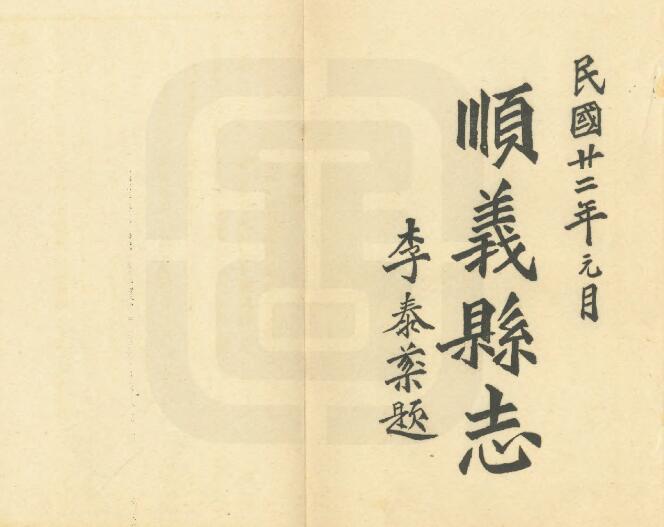 民國廿二年元月
順義縣志
李泰棻題